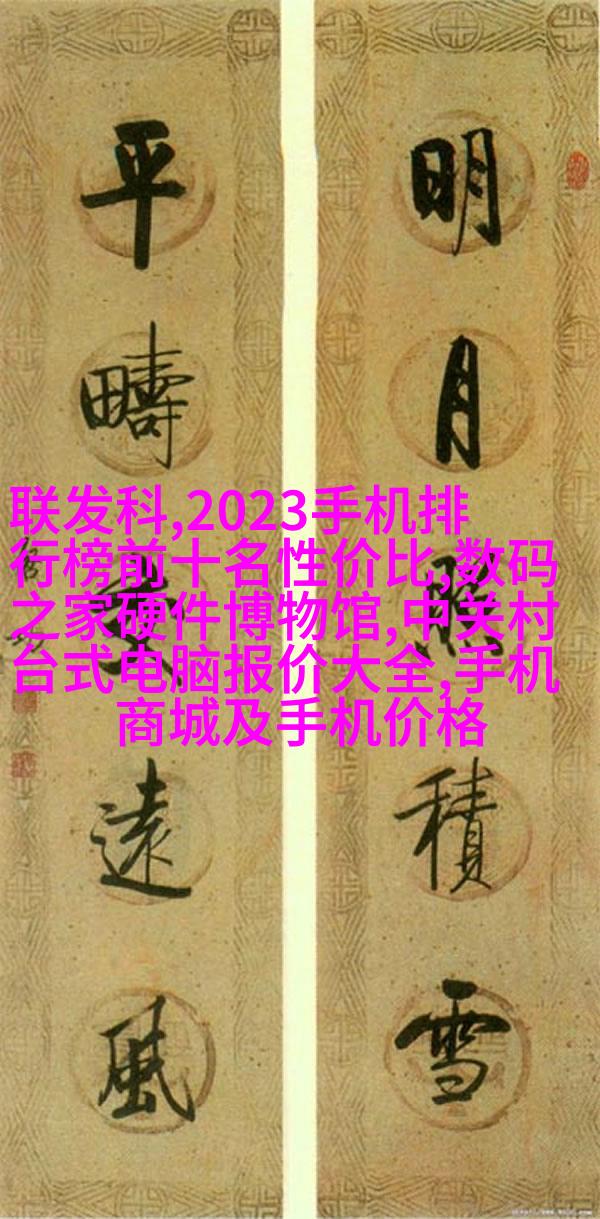 明月照積雪
平疇交遠風
联发科,2023手机排
行榜前十名性价比,数码
之家硬件博物馆,中关村
台式电脑报价大全,手机
商城及手机价格